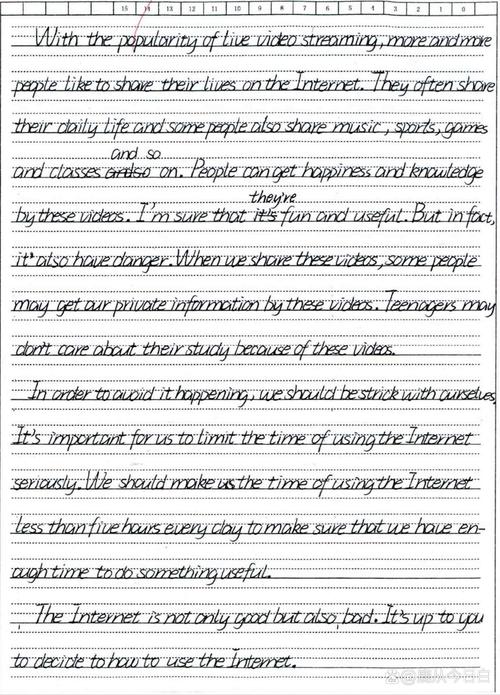 15 14 13 12 11 10 9 8 7 6 5 4 3 2 1 0
With the popularity of live video streaming, more and more
people like to share their lives on the Internet. They often share
their daily life and some people also share music, sports, games
and so
and classes on. People can get happiness and knowledge
they're
by these videos. I'm sure that it's fun and useful. But in fact,
it's also have danger. When we share these videos, some people
may get our private information by these videos. Teenagers may
don't care about their study because of these videos.
In order to avoid it happening, we should be strick with ourselves,
It's important for us to limit the time of using the Internet
seriously. We should make us the time of using the Internet
less than five hours every day to make sure that we have en-
ough time to do something useful.
The Internet is not only good but also bad. It's up to you
to decide to how to use the Internet.